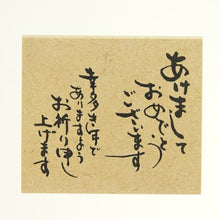 あけまして
おめでとう
ございます
幸多き年で
ありますよう
お祈り申し
上げます